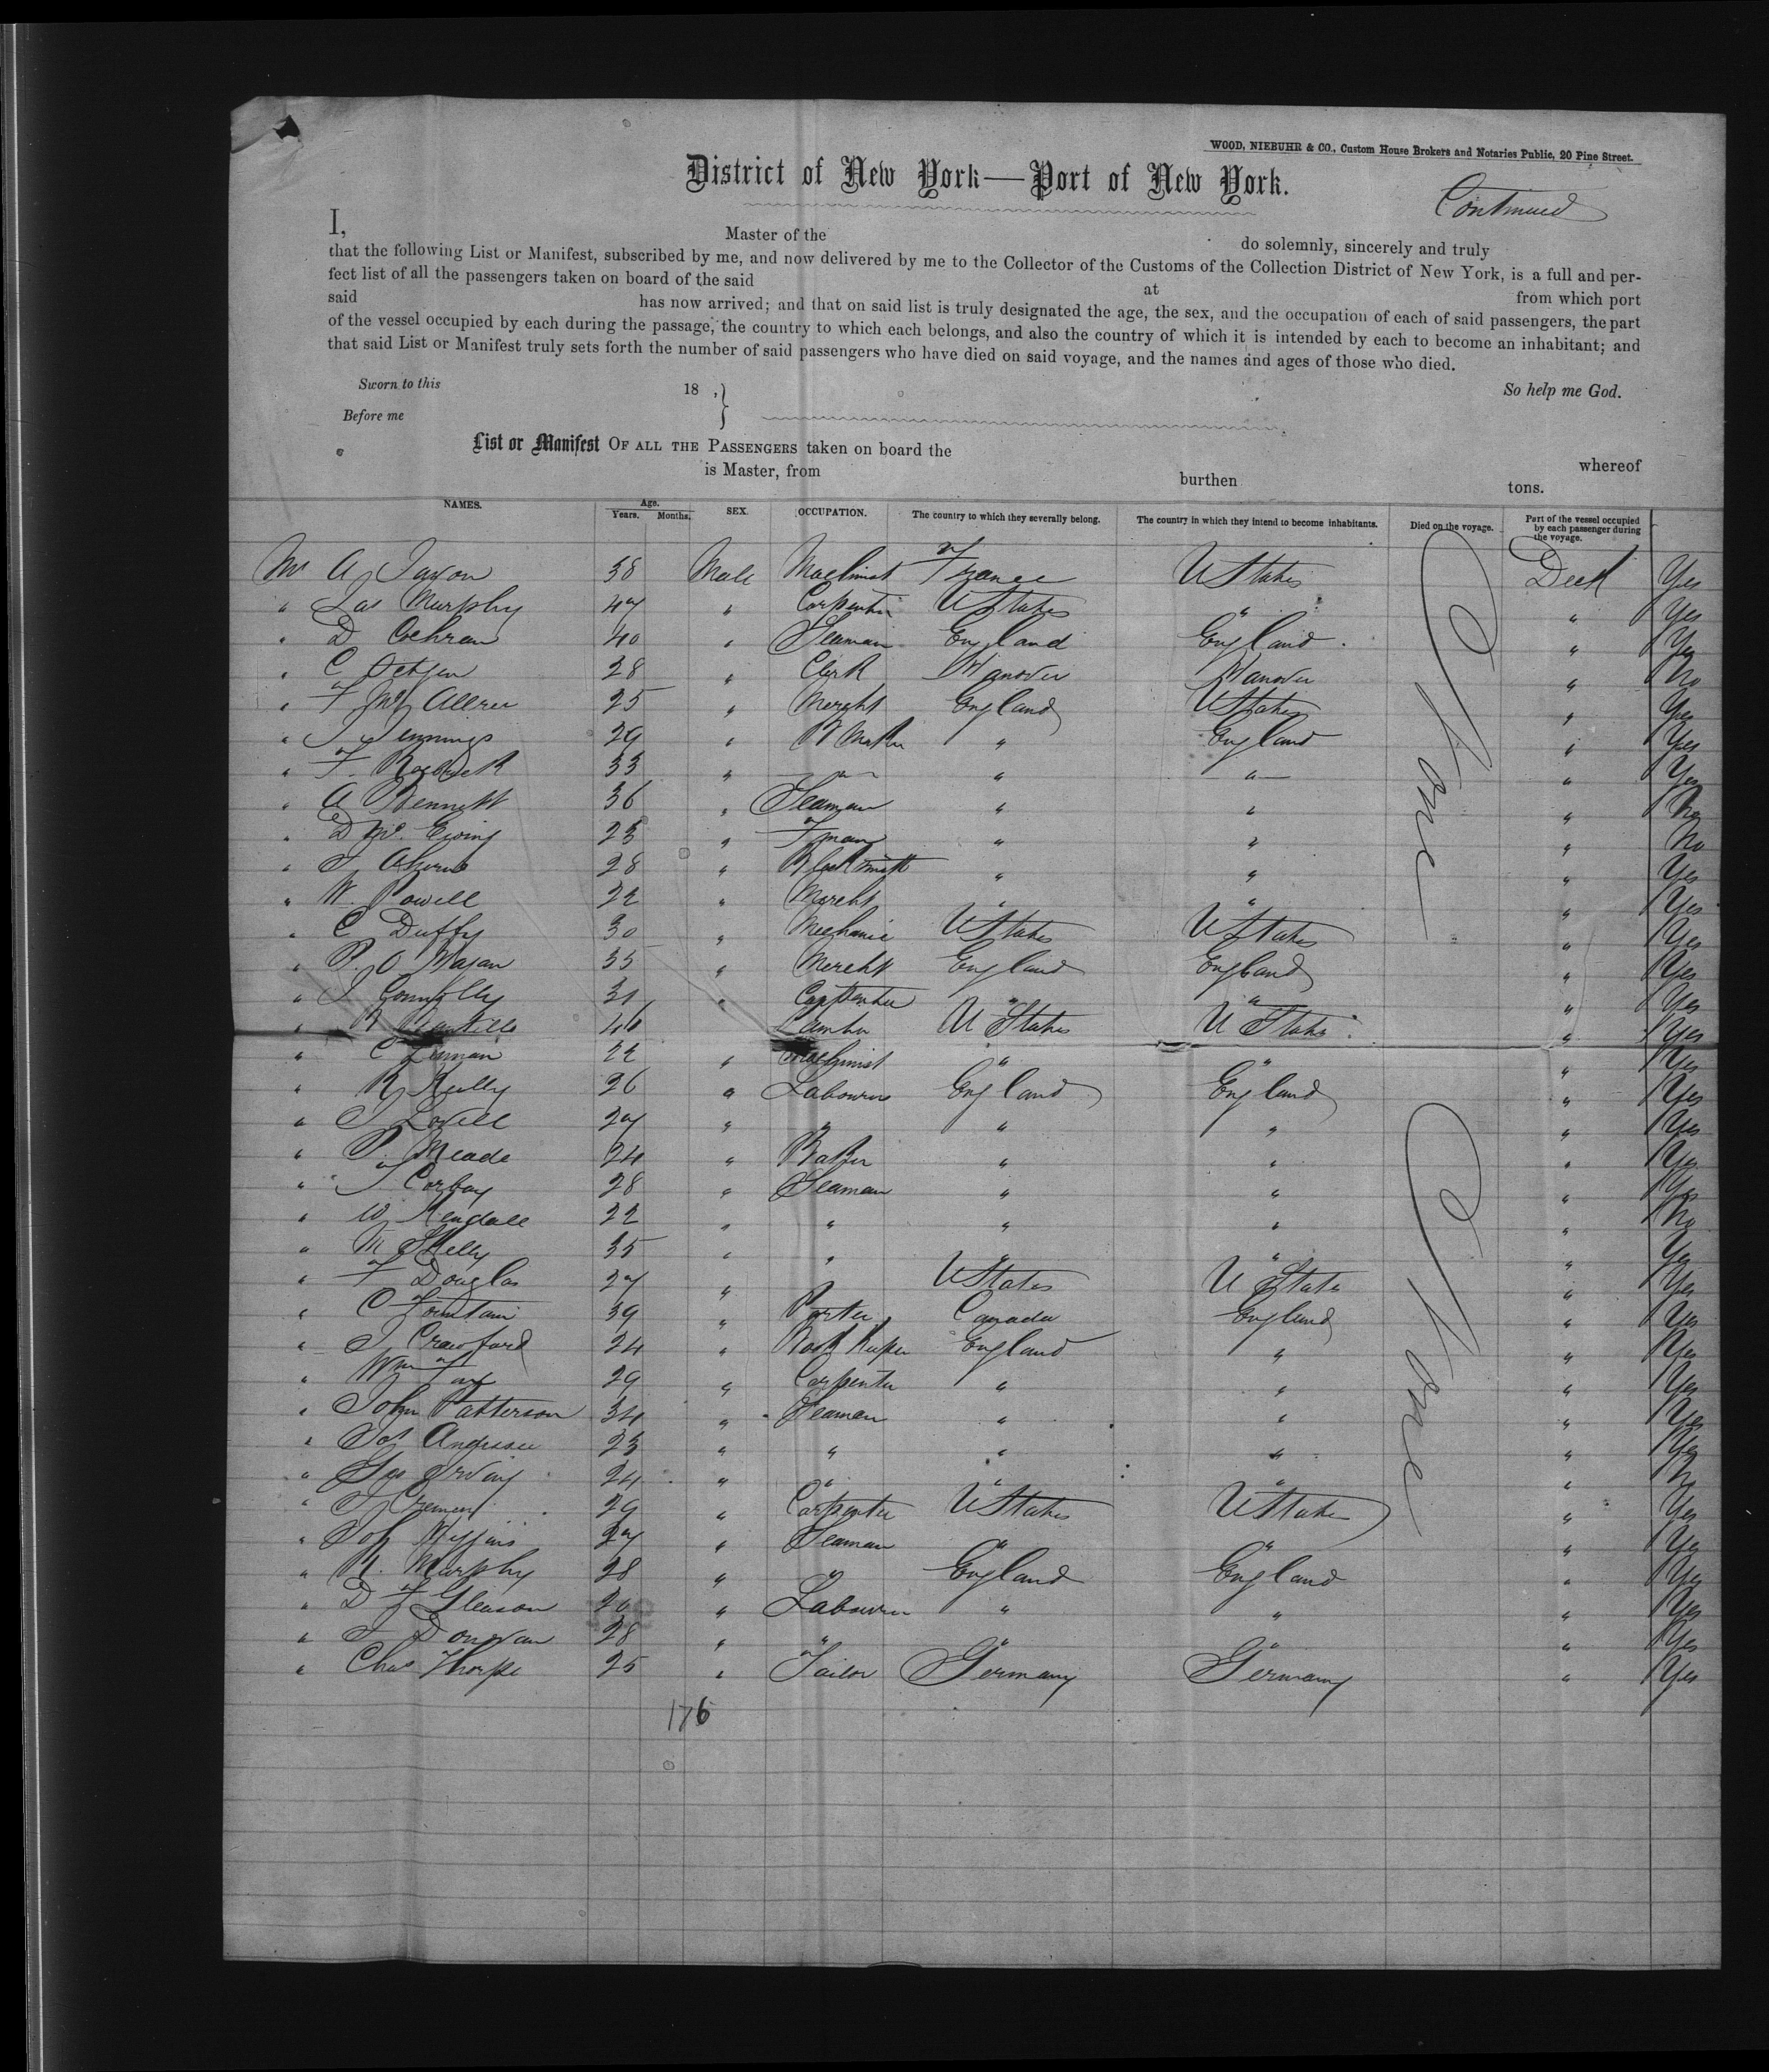 WOOD, NIEBUHR & CO., Custom House Brokers and Notaries Public, 20 Pine Street.
District of New York—Port of New York.
Continued
I, Master of the do solemnly, sincerely and truly
that the following List or Manifest, subscribed by me, and now delivered by me to the Collector of the Customs of the Collection District of New York, is a full and per-
fect list of all the passengers taken on board of the said at from which port
said has now arrived; and that on said list is truly designated the age, the sex, and the occupation of each of said passengers, the part
of the vessel occupied by each during the passage, the country to which each belongs, and also the country of which it is intended by each to become an inhabitant; and
that said List or Manifest truly sets forth the number of said passengers who have died on said voyage, and the names and ages of those who died.
Sworn to this 18 , } So help me God.
Before me
List or Manifest OF ALL THE PASSENGERS taken on board the whereof
is Master, from burthen tons.
NAMES. Age. Years. Months. SEX. OCCUPATION. The country to which they severally belong. The country in which they intend to become inhabitants. Died on the voyage. Part of the vessel occupied by each passenger during the voyage.
Mr A 38 Male Machinist France U States None Deck Yes
" Jas Murphy 47 " Carpenter U States " " Yes
" D Cochran 40 " Seaman England England " Yes
" C 28 " Clerk Hanover Hanover " No
" F 25 " Mercht England U States " Yes
" J Jennings 29 " B Maker " England " Yes
" F. 33 " " " " " Yes
" A Bennett 36 " Seaman " " " No
" D Mc Ewing 23 " F man " " " No
" 28 " Blacksmith " " " Yes
" W. Powell 22 " Mercht " " " Yes
" C Duffy 30 " Mechanic U States U States " Yes
" P. O 35 " Mercht England England " Yes
" J Connolly 31 " Carpenter " " " Yes
" 46 U States U States " Yes
" C 22 " Machinist " " " Yes
" R Kelly 26 " Labourer England England " Yes
" J Lovell 27 " " " " " Yes
" P. Meade 24 " Baker " " " Yes
" 28 " Seaman " " " Yes
" W Kendall 22 " " " " " No
" M 35 " " " " " Yes
" F Douglas 27 " U States U States " Yes
" C Fountain 39 " Porter Canada England " Yes
" J Crawford 24 " Book Keeper England " " Yes
" Wm 29 " Carpenter " " None " Yes
" John Patterson 34 " Seaman " " " Yes
" 23 " " " " " Yes
" Geo 24 " " " " " No
" J 29 " Carpenter U States U States " Yes
" 27 " Seaman " " " Yes
" R. Murphy 28 " " England England " Yes
" D F Gleason 20 " Labourer " " " Yes
" Donovan 28 " " " " " Yes
" Chas Thorpe 25 " Tailor Germany Germany " Yes
176